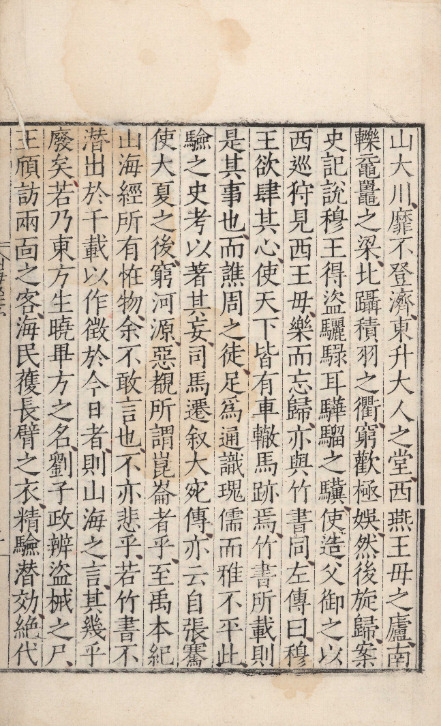 山大川靡不登濟東升大人之堂西燕王毋之廬南
轢黿鼉之梁北躡積羽之衢窮歡極娛然後旋歸案
史記說穆王得盜驪騄耳驊騮之驥使造父御之以
西巡狩見西王毋樂而忘歸亦與竹書同左傳曰穆
王欲肆其心使天下皆有車轍馬跡焉竹書所載則
是其事也而譙周之徒足爲通識瑰儒而雅不平此
驗之史考以著其妄司馬遷叙大宛傳亦云自張騫
使大夏之後窮河源惡覩所謂崑崙者乎至禹本紀
山海經所有恠物余不敢言也不亦悲乎若竹書不
潜出於千載以作徵於今日者則山海之言其幾乎
廢矣若乃東方生曉畢方之名劉子政辨盜械之尸
王頎訪兩面之客海民獲長臂之衣精驗潜効絶代